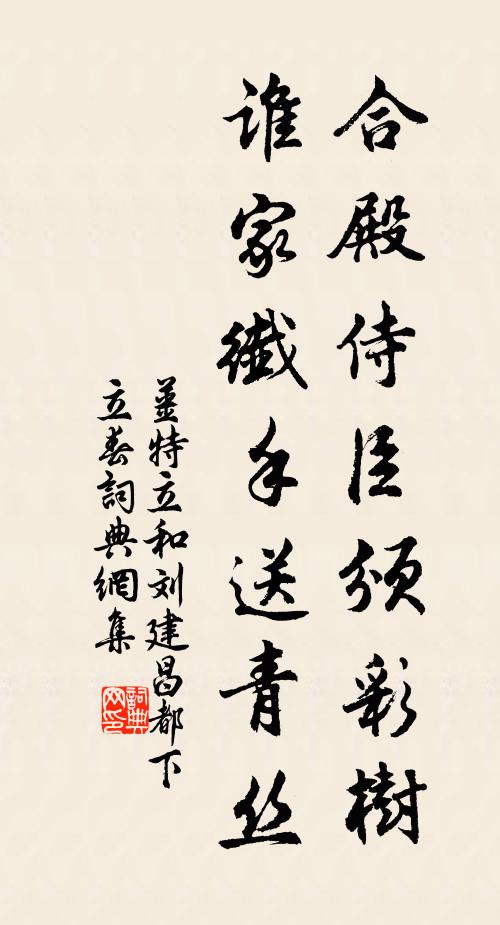 合殿侍臣颁彩樹
谁家纖手送青丝
姜特立和刘建昌都下
立春詞典網集
詞典网印